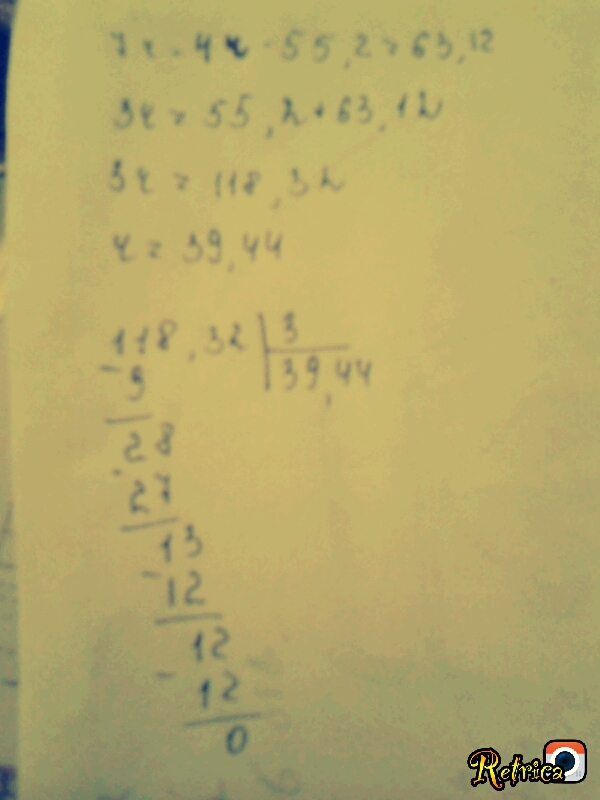 7x - 4x - 55,2 = 63,12
3x = 55,2 + 63,12
3x = 118,32
x = 39,44
118,32 | 3
- 9 | 39,44
28
- 27
13
- 12
12
- 12
0
Retrica